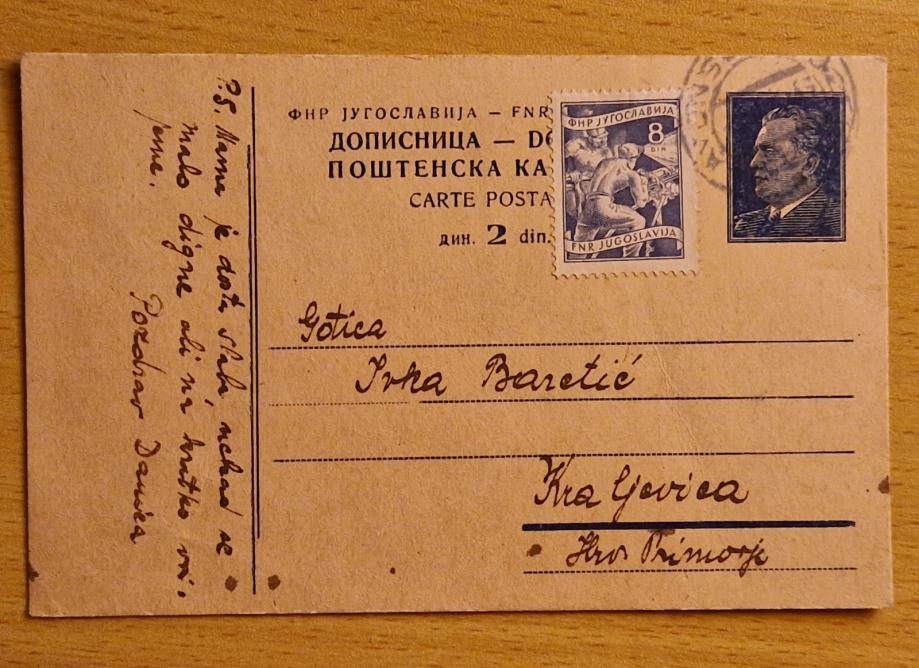 ФНР ЈУГОСЛАВИЈА — FNR
ДОПИСНИЦА — DO
ПОШТЕНСКА КА
CARTE POSTA
дин. 2 din.
ФНР ЈУГОСЛАВИЈА
8
DIN
FNR JUGOSLAVIJA
Gotica
Ivka Baretić
Kraljevica
Hrv. Primorje
P.S. Mama je dosta slaba, nekad se
malo digne ali na kratko vri-
jeme.
Pozdrav Danica